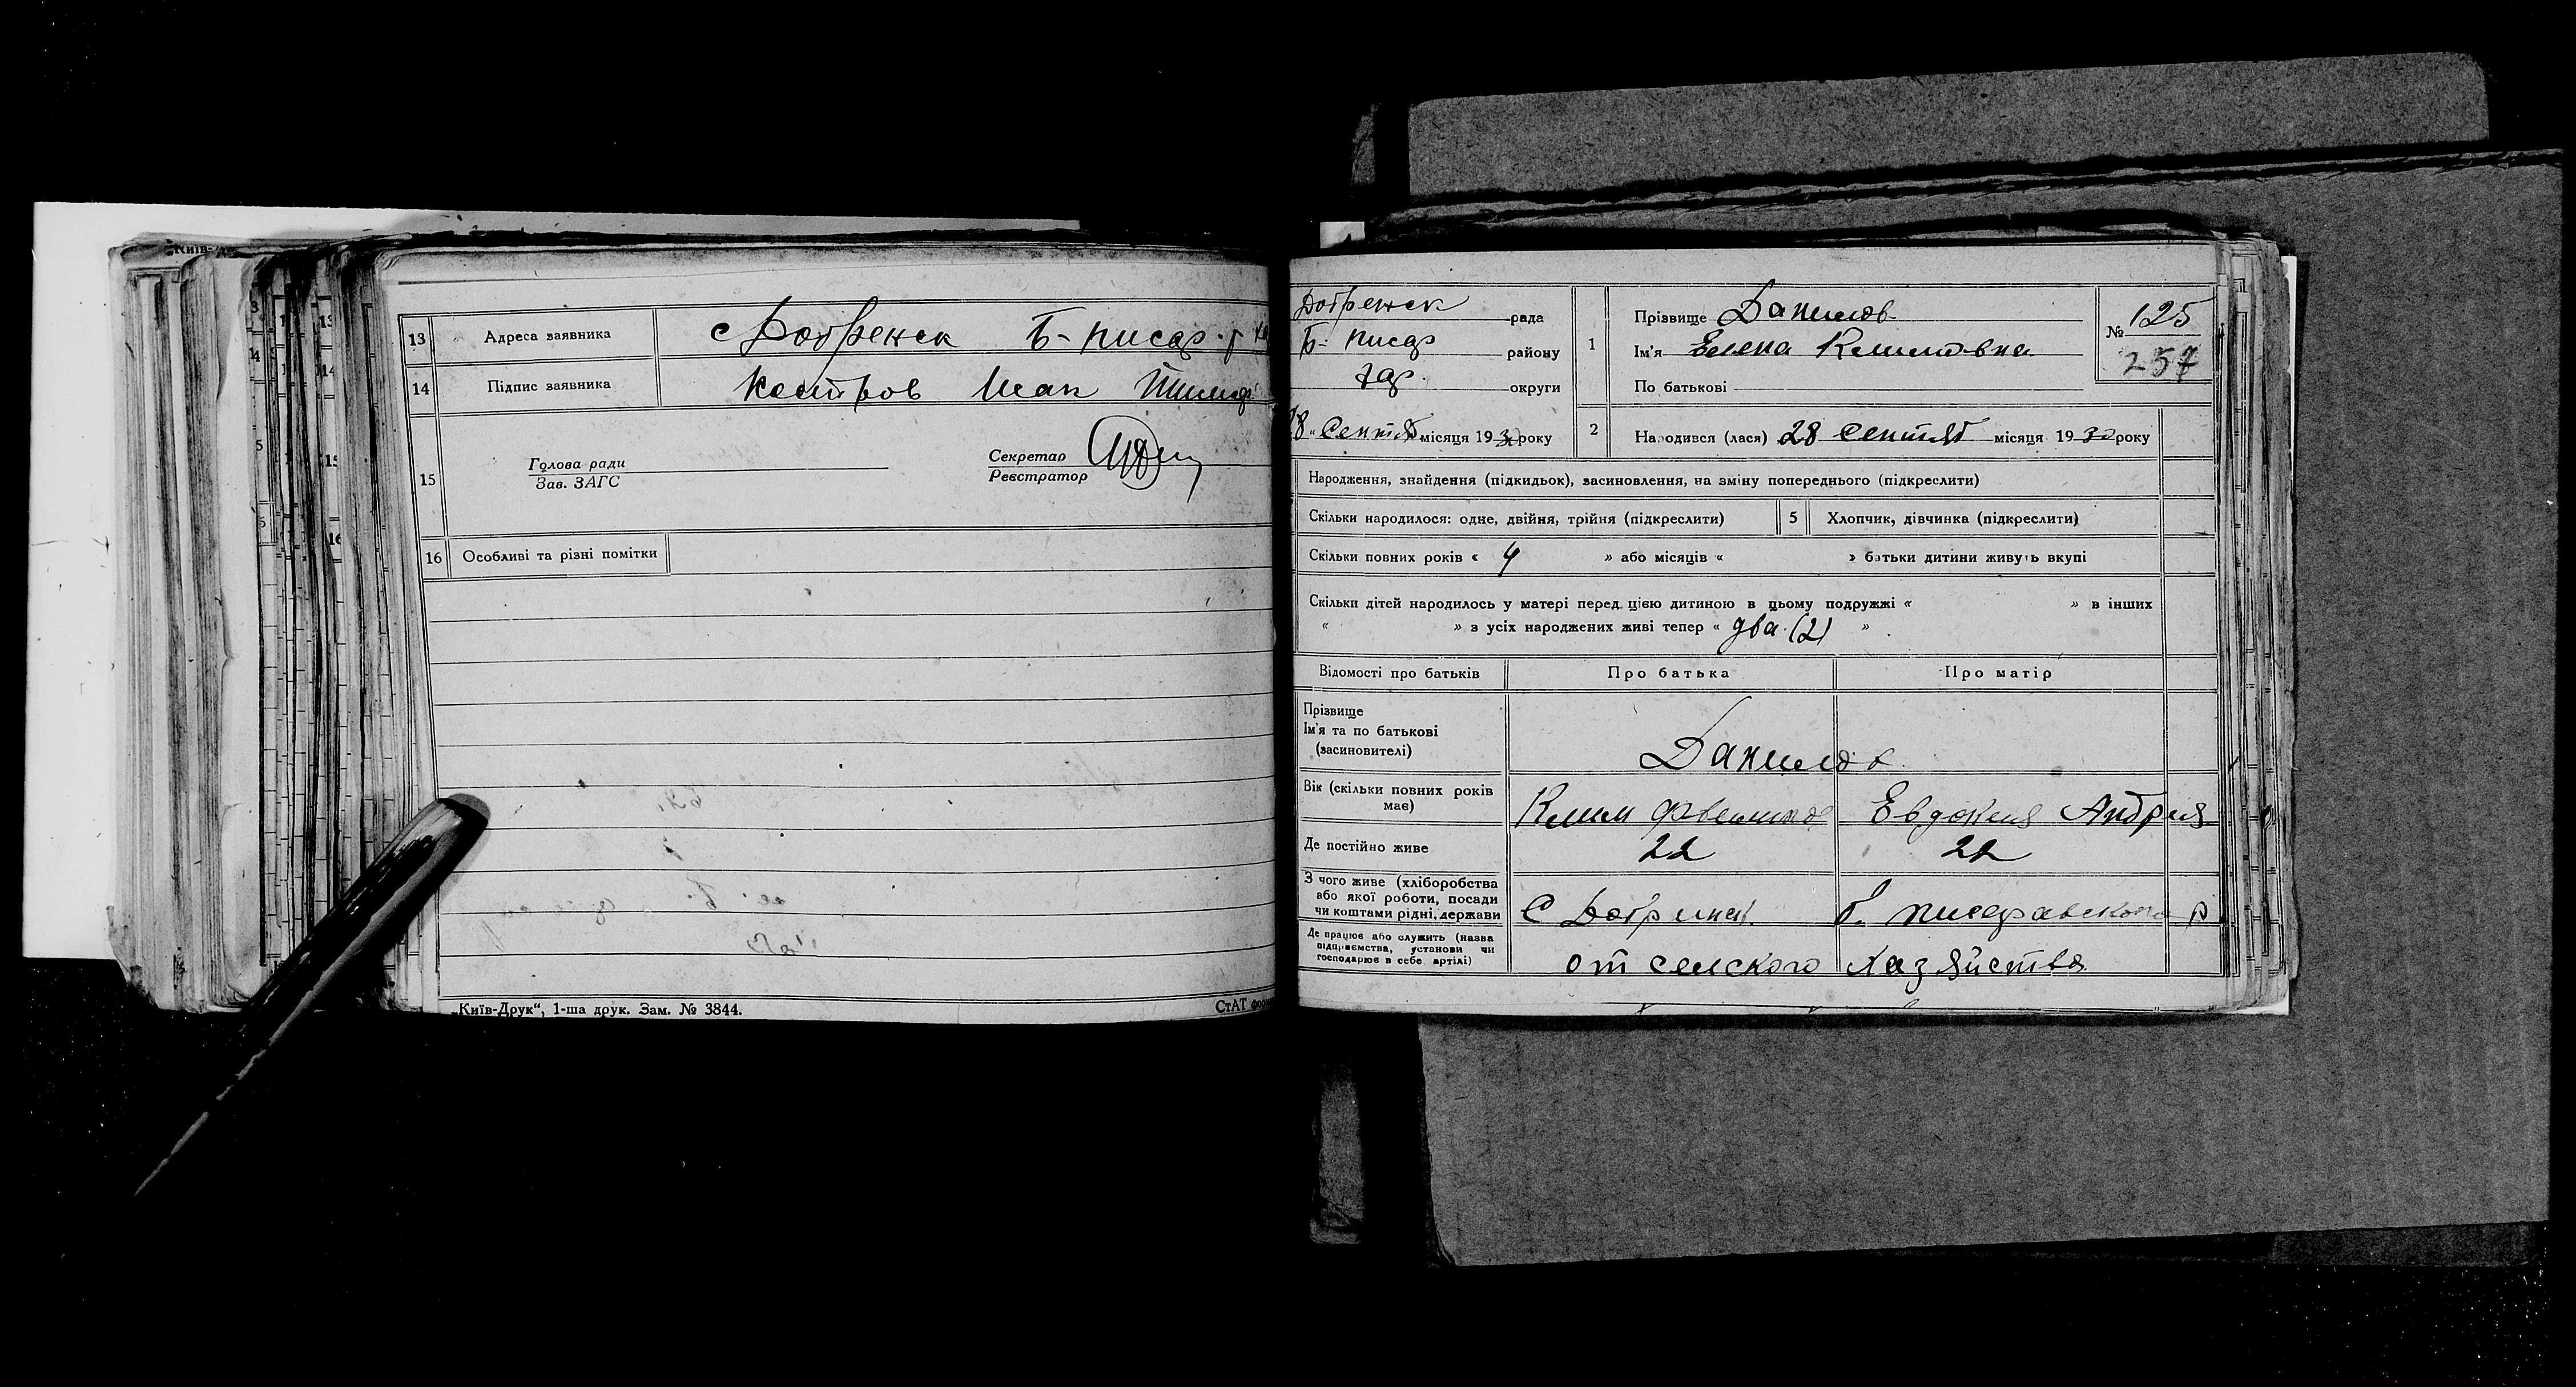 13 Адреса заявника с Добренск Б-писар. р
14 Підпис заявника Костров Иван
15 Голова ради Секретар
Зав. ЗАГС Реєстратор
16 Особливі та різні помітки
„Київ-Друк“, 1-ша друк. Зам. № 3844. СтАТ
Добренск рада
Б- писар району
округи
Сентяб місяця 1930 року
1 Прізвище Данилов
Ім'я Елена Климовна
По батькові
№ 125
257
2 Народився (лася) 28 Сентяб місяця 1930 року
Народження, знайдення (підкидьок), засиновлення, на зміну попереднього (підкреслити)
Скільки народилося: одне, двійня, трійня (підкреслити) 5 Хлопчик, дівчинка (підкреслити)
Скільки повних років « 4 » або місяців « » батьки дитини живуть вкупі
Скільки дітей народилось у матері перед цією дитиною в цьому подружжі « » в інших
« » з усіх народжених живі тепер « два (2) »
Відомості про батьків Про батька Про матір
Прізвище
Ім'я та по батькові
(засиновителі) Данилов
Вік (скільки повних років
має) Клим Евдокия Андрия
Де постійно живе 22 22
З чого живе (хліборобства
або якої роботи, посади
чи коштами рідні, держави С Б. писаравского р
Де працює або служить (назва
підприємства, установи чи
господарює в себе, артілі) от селского хазяйства